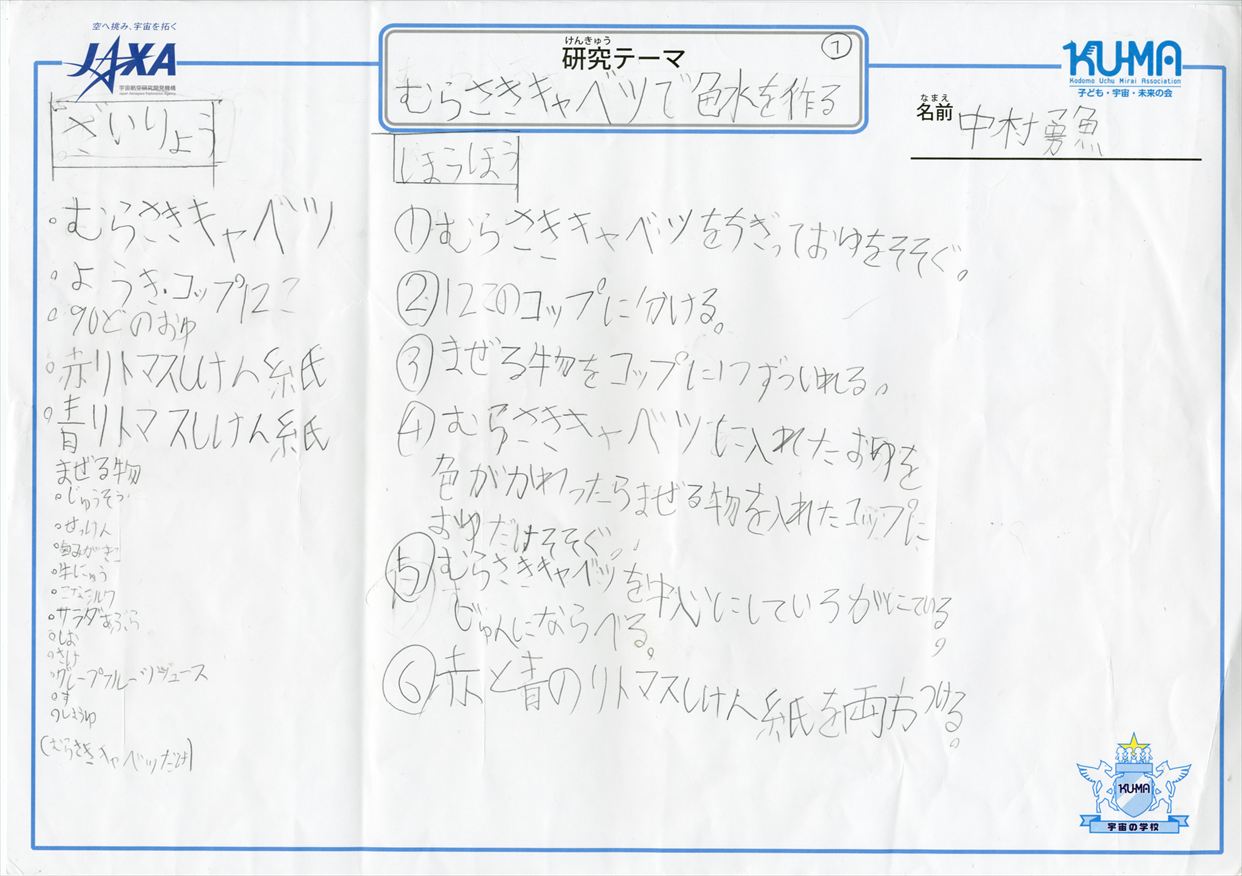 空へ挑み、宇宙を拓く
JAXA
宇宙航空研究開発機構
Japan Aerospace Exploration Agency
けんきゅう
研究テーマ
①
むらさきキャベツで色水を作る
KU-MA
Kodomo Uchu Mirai Association
子ども・宇宙・未来の会
なまえ
名前 中村勇魚
ざいりょう
・むらさきキャベツ
・ようき・コップ12こ
・90どのおゆ
・赤リトマスしけん紙
・青リトマスしけん紙
まぜる物
・じゅうそう
・せっけん
・歯みがきこ
・牛にゅう
・こなミルク
・サラダあぶら
・しお
・さけ
・グレープフルーツジュース
・す
・しょうゆ
(むらさきキャベツだけ)
ほうほう
①むらさきキャベツをちぎっておゆをそそぐ。
②12このコップに分ける。
③まぜる物をコップに1つずついれる。
④むらさきキャベツに入れたおゆを
色がかわったらまぜる物を入れたコップに
おゆだけそそぐ。
⑤むらさきキャベツを中心にしていろがにている
じゅんにならべる。
⑥赤と青のリトマスしけん紙を両方つける。
KU-MA
宇宙の学校